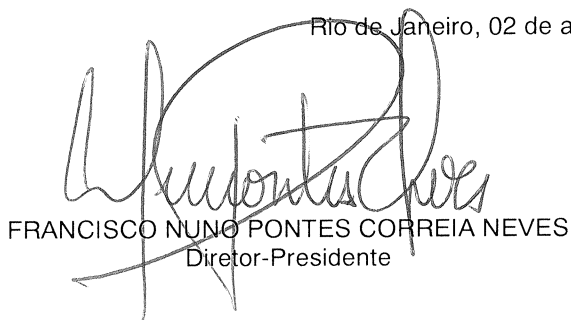 Rio de Janeiro, 02 de a
FRANCISCO NUNO PONTES CORREIA NEVES
Diretor-Presidente